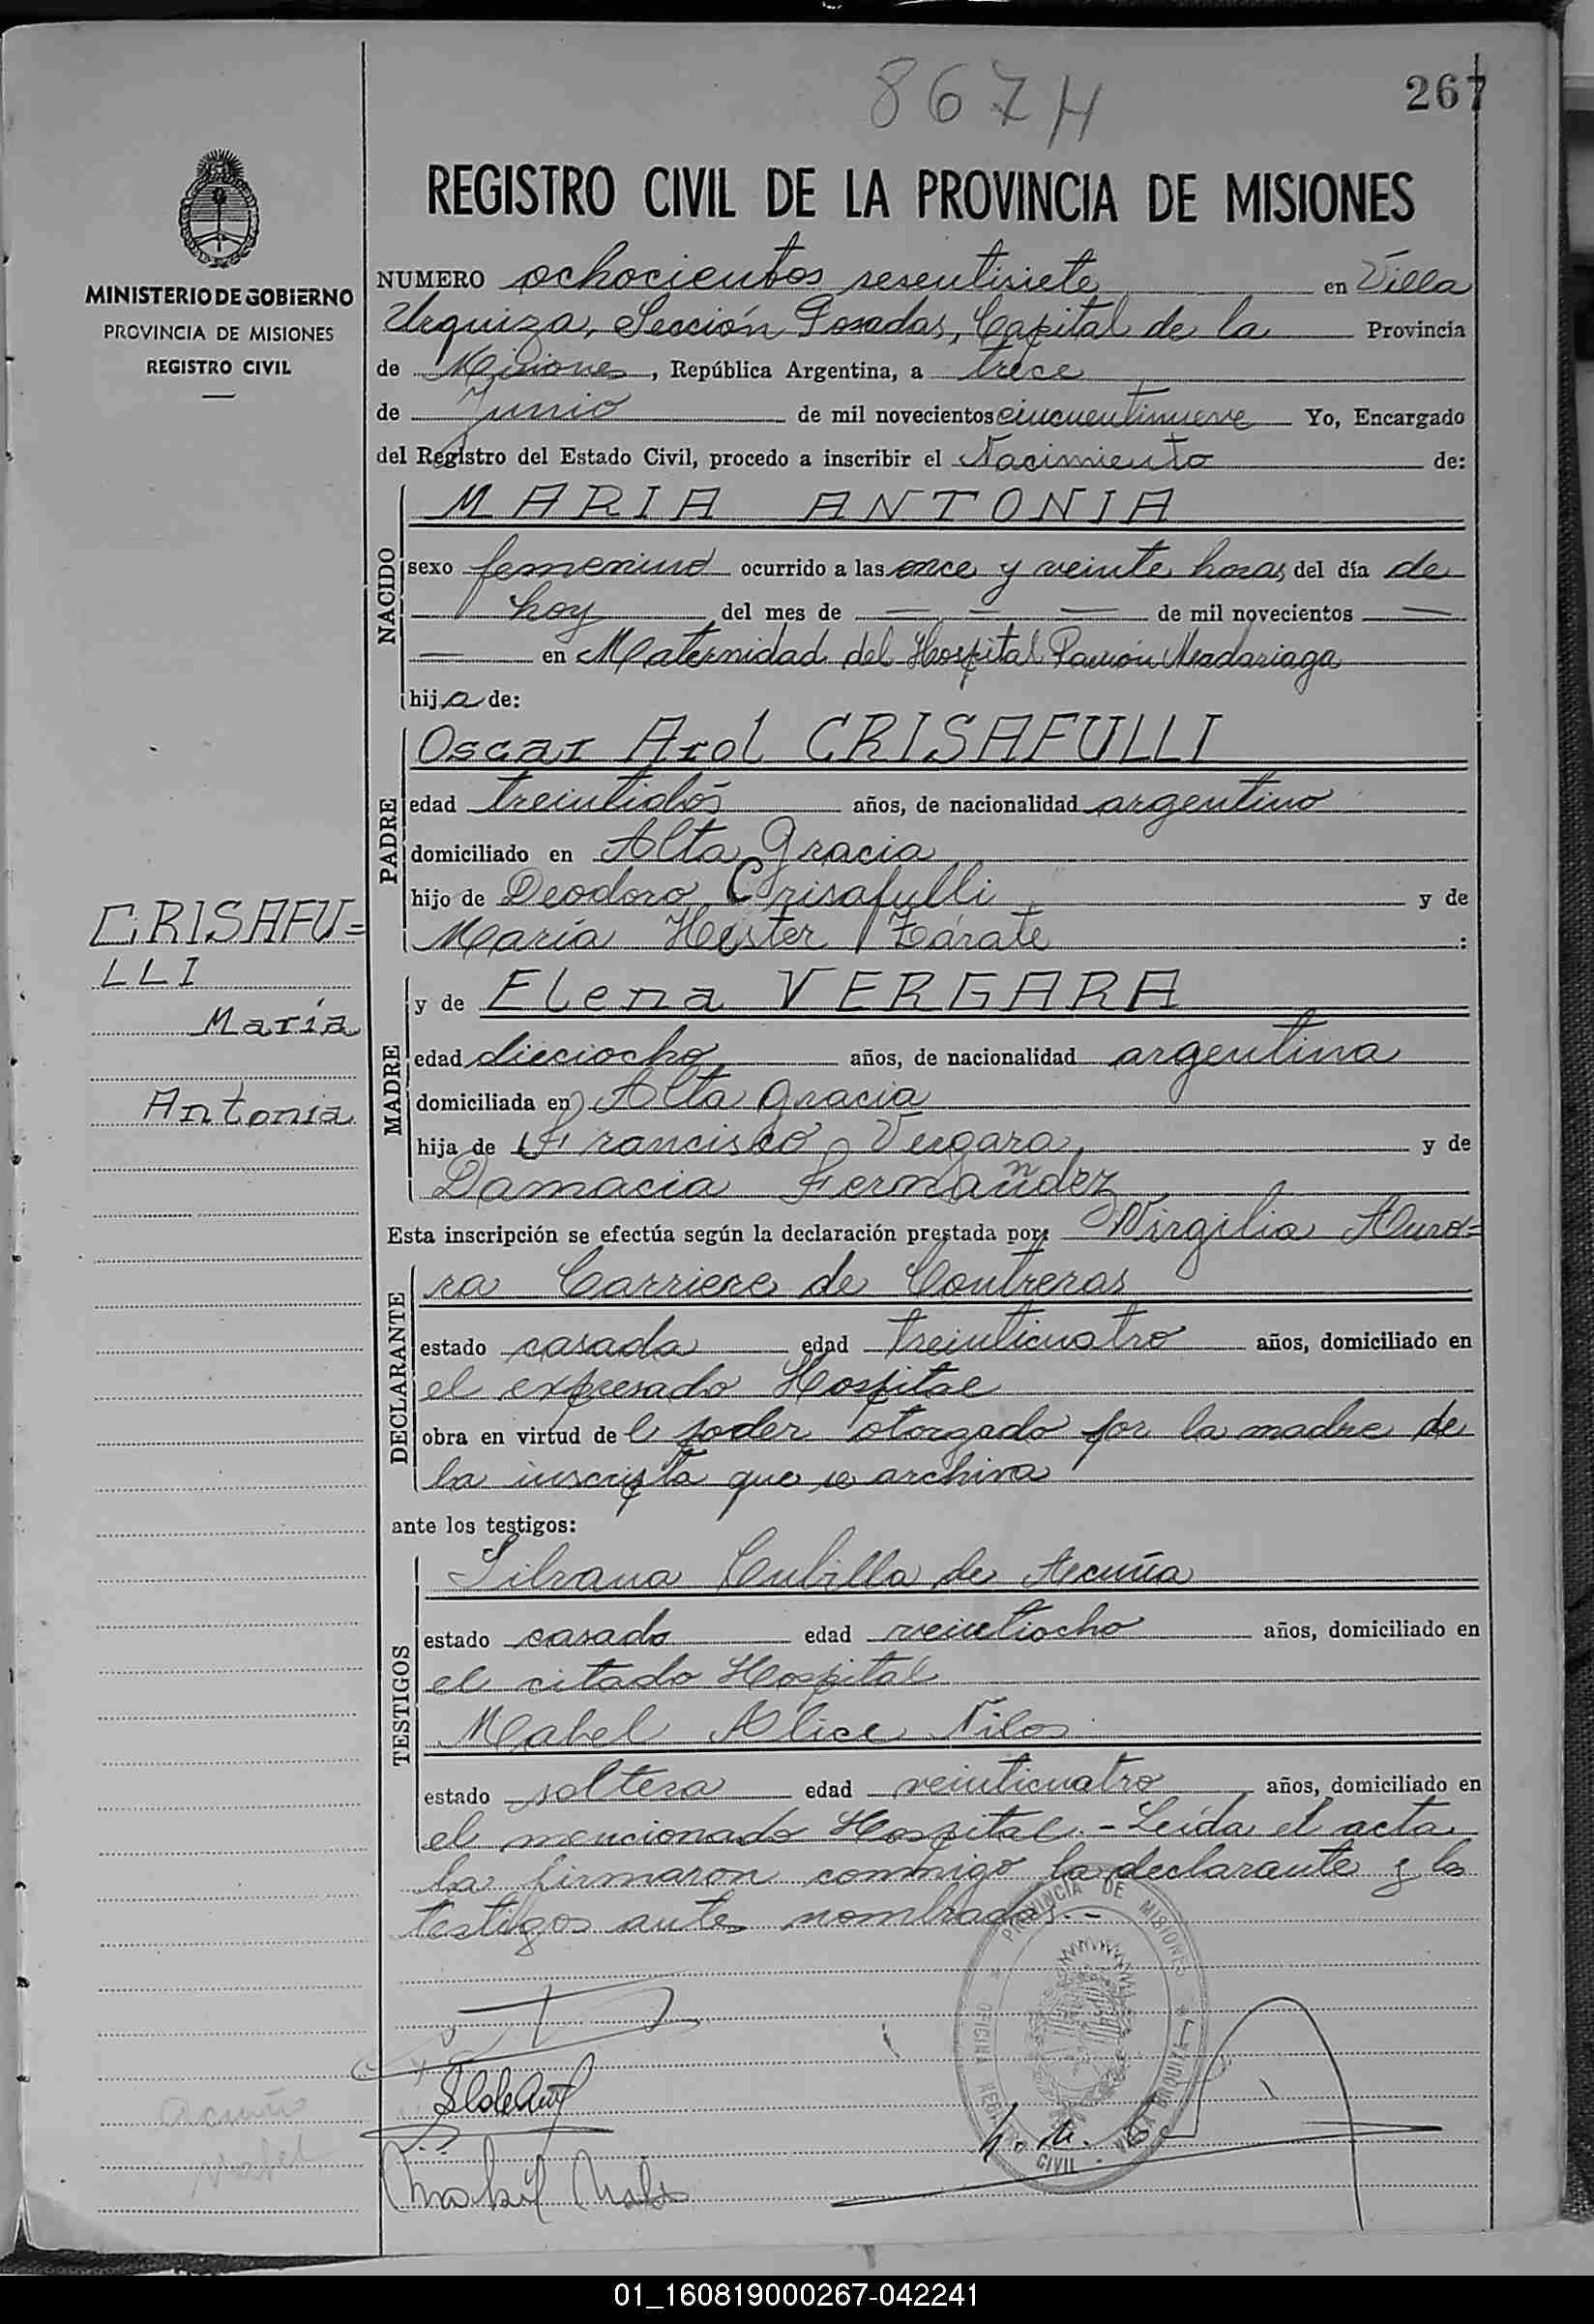 867 H
267
REGISTRO CIVIL DE LA PROVINCIA DE MISIONES
MINISTERIO DE GOBIERNO
PROVINCIA DE MISIONES
REGISTRO CIVIL
NUMERO ochocientos sesentisiete en Villa
Urquiza, Sección Posadas, Capital de la Provincia
de Misiones, República Argentina, a trece
de Junio de mil novecientos cincuentinueve Yo, Encargado
del Registro del Estado Civil, procedo a inscribir el Nacimiento de:
NACIDO
MARIA ANTONIA
sexo femenino ocurrido a las once y veinte horas del día de
hoy del mes de — — — de mil novecientos —
— en Maternidad del Hospital Ramón Madariaga
hija de:
PADRE
Oscar Arol CRISAFULLI
edad treintidós años, de nacionalidad argentino
domiciliado en Alta Gracia
hijo de Deodoro Crisafulli y de
María Hester Zárate :
CRISAFU=
LLI
María
Antonia
MADRE
y de Elena VERGARA
edad dieciocho años, de nacionalidad argentina
domiciliada en Alta Gracia
hija de Francisco Vergara y de
Damacia Fernández
Esta inscripción se efectúa según la declaración prestada por: Virgilia Auro=
DECLARANTE
ra Carriere de Contreras
estado casada edad treinticuatro años, domiciliado en
el expresado Hospital
obra en virtud del poder otorgado por la madre de
la inscripta que se archiva
ante los testigos:
TESTIGOS
Silvana Cubilla de Acuña
estado casada edad veintiocho años, domiciliado en
el citado Hospital
Mabel Alice Nilos
estado soltera edad veinticuatro años, domiciliado en
el mencionado Hospital.- Leída el acta
la firmaron conmigo la declarante y los
testigos antes nombrados.-
PROVINCIA DE MISIONES
OFICINA REGISTRO CIVIL
VILLA URQUIZA
Acuña
Mabel
01_160819000267-042241